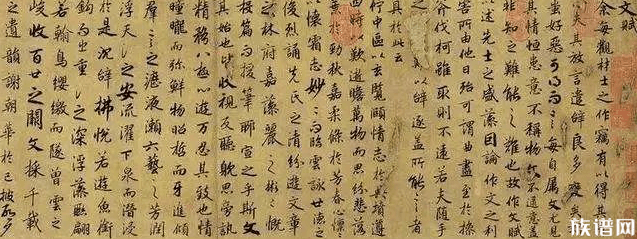 文賦
余每觀材士之作竊有以得其
夫其放言遣辭良多變
好惡可得而言每自属文尤見
其情恒患意不稱物文不逮意盖
非知之難能之難也故作文賦
以述先士之盛藻因論作文之利
害所由他日殆可謂曲盡至於操
斧伐柯雖取則不遠若夫隨手
以辞逐盖所能言者
具於此云
佇中區以玄覽頤情志於典墳遵
四時以歎逝瞻萬物而思紛悲落
葉於勁秋嘉柔條於芳春心懍〻
以懷霜志眇〻而臨雲詠世德之
駿烈誦先民之清芬遊文章
之林府嘉麗藻之彬〻慨
投篇而援筆聊宣之乎斯文
其始也皆收視反聽耽思傍訊
精騖八極心遊萬仞其致也情
曈曨而弥鮮物昭晰而互進傾
群言之瀝液漱六藝之芳潤
浮天淵之安流濯下泉而潛浸
於是沈辭怫悅若遊魚銜
鉤而出重淵之深浮藻聯翩
若翰鳥纓繳而墜曾雲之
峻收百世之闕文採千載
之遺韻謝朝華於已披啟夕
族谱网